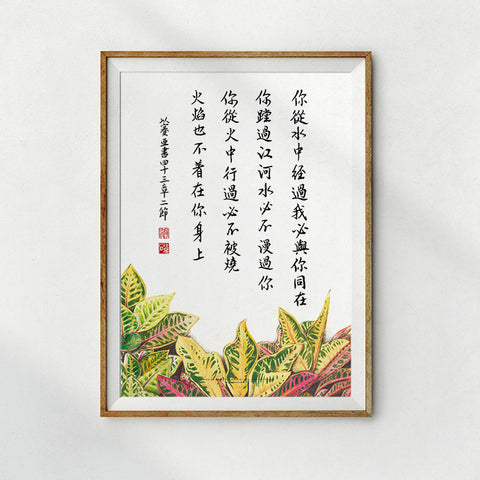 你從水中経過我必與你同在
你蹚過江河水必不漫過你
你從火中行過必不被燒
火焰也不着在你身上
以賽亞書四十三章二節